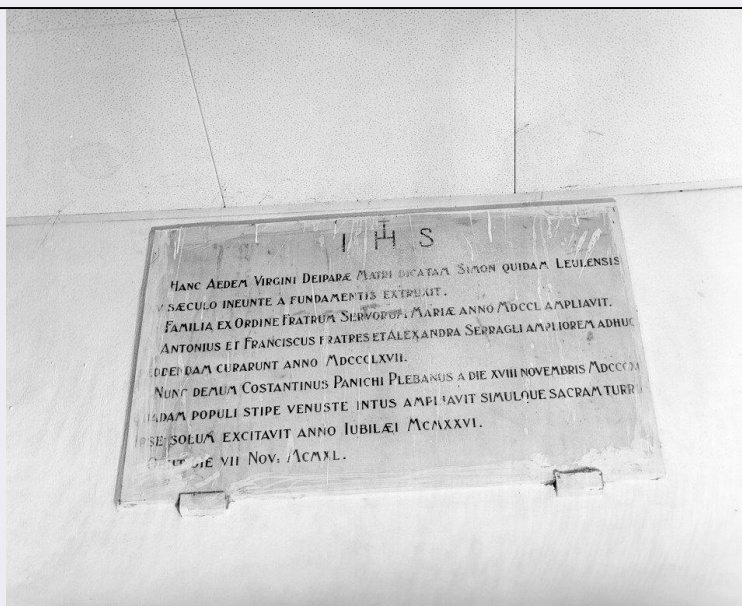 I H S
HANC AEDEM VIRGINI DEIPARÆ MATRI DICATAM SIMON QUIDAM LEULENSIS
V SÆCULO INEUNTE A FUNDAMENTIS EXTRUXIT.
FAMILIA EX ORDINE FRATRUM SERVORUM MARIÆ ANNO MDCCL AMPLIAVIT.
ANTONIUS ET FRANCISCUS FRATRES ET ALEXANDRA SERRAGLI AMPLIOREM ADHUC
DAM CURARUNT ANNO MDCCCLXVII.
NUNC DEMUM COSTANTINUS PANICHI PLEBANUS A DIE XVIII NOVEMBRIS
POPULI STIPE VENUSTE INTUS AMPLIAVIT SIMULQUE SACRAM TURR
SOLUM EXCITAVIT ANNO IUBILÆI MCMXXVI.
DIE VII NOV: MCMXL.